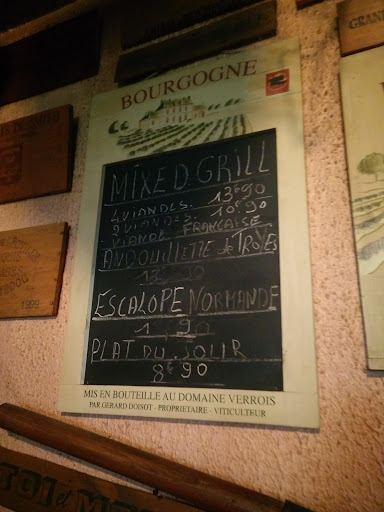 BOURGOGNE
MIXED. GRILL
4 VIANDES. 13€90
2 VIANDES. 10€90
VIANDE FRANCAISE
ANDOUILLETTE de TROYES
ESCALOPE NORMANDE
PLAT DU JOUR
8€90
MIS EN BOUTEILLE AU DOMAINE VERROIS
PAR GERARD DOISOT - PROPRIETAIRE - VITICULTEUR
GRAN
TOI et M